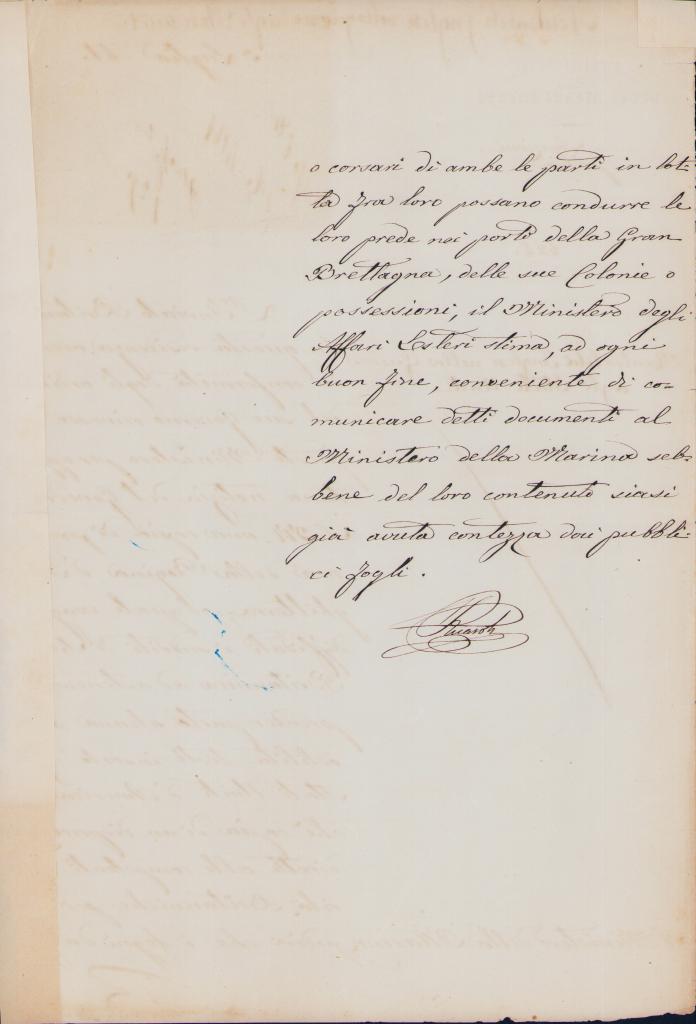 o corsari di ambe le parti in lot-
ta fra loro possano condurre le
loro prede nei porti della Gran
Brettagna, delle sue Colonie o
possessioni, il Ministero degli
Affari Esteri stima, ad ogni
buon fine, conveniente di co-
municare detti documenti al
Ministero della Marina seb-
bene del loro contenuto siasi
già avuta contezza dai pubbli-
ci fogli.